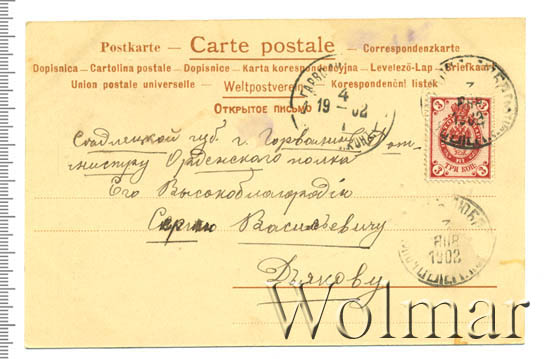 Postkarte — Carte postale — Correspondenzkarte
Dopisnica — Cartolina postale — Dopisnice — Karta korespondencyjna — Levelező-Lap — Brefkaart
Union postale universelle — Weltpostverein — Korespondenční listek
Открытое письмо
4
19 02
1
3 3
3 3
ТРИ КОП
1902
Сѣдлецкой губ. г. Гарволинъ
Орденского полка
Его Высокоблагородію
Сергѣю Васильевичу
Дьякову
3
ЯНВ
1902
Wolmar